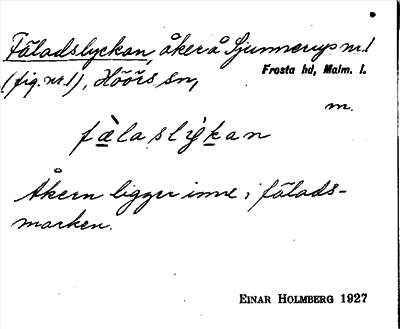 Fäladslyckan, åker å Ljunnerup nr. 1
(fig. nr. 1), Höörs sn,
Frosta hd, Malm. l.
m.
fæ̀laslýkan
Åkern ligger inne i fälads-
marken.
EINAR HOLMBERG 1927